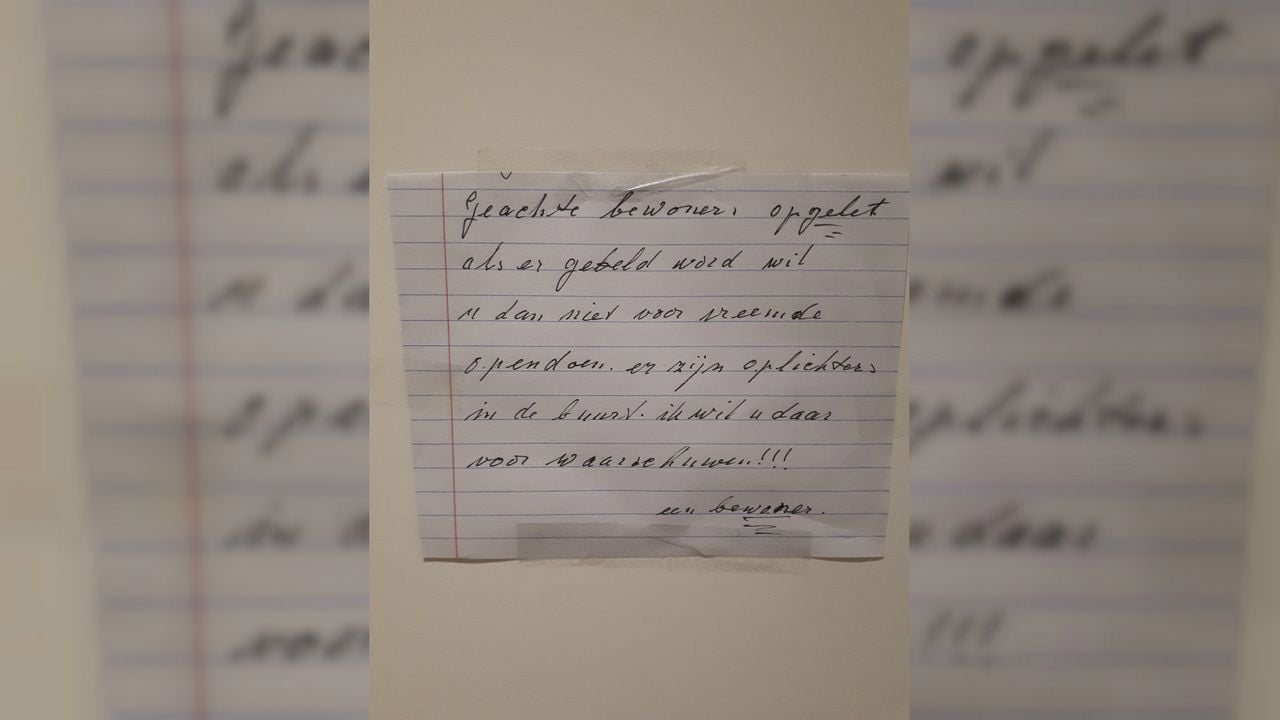 Geachte bewoners opgelet
als er gebeld word wil
u dan niet voor vreemde
opendoen. er zijn oplichters
in de buurt. ik wil u daar
voor waarschuwen!!!
een bewoner.